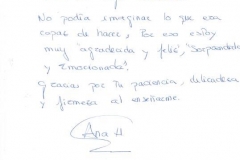 No podía imaginar lo que era
capaz de hacer, Por eso estoy
muy "agradecida y feliz", "Sorprendida
y Emocionada".
Gracias por tu paciencia, delicadeza
y firmeza al enseñarme.
Ana H